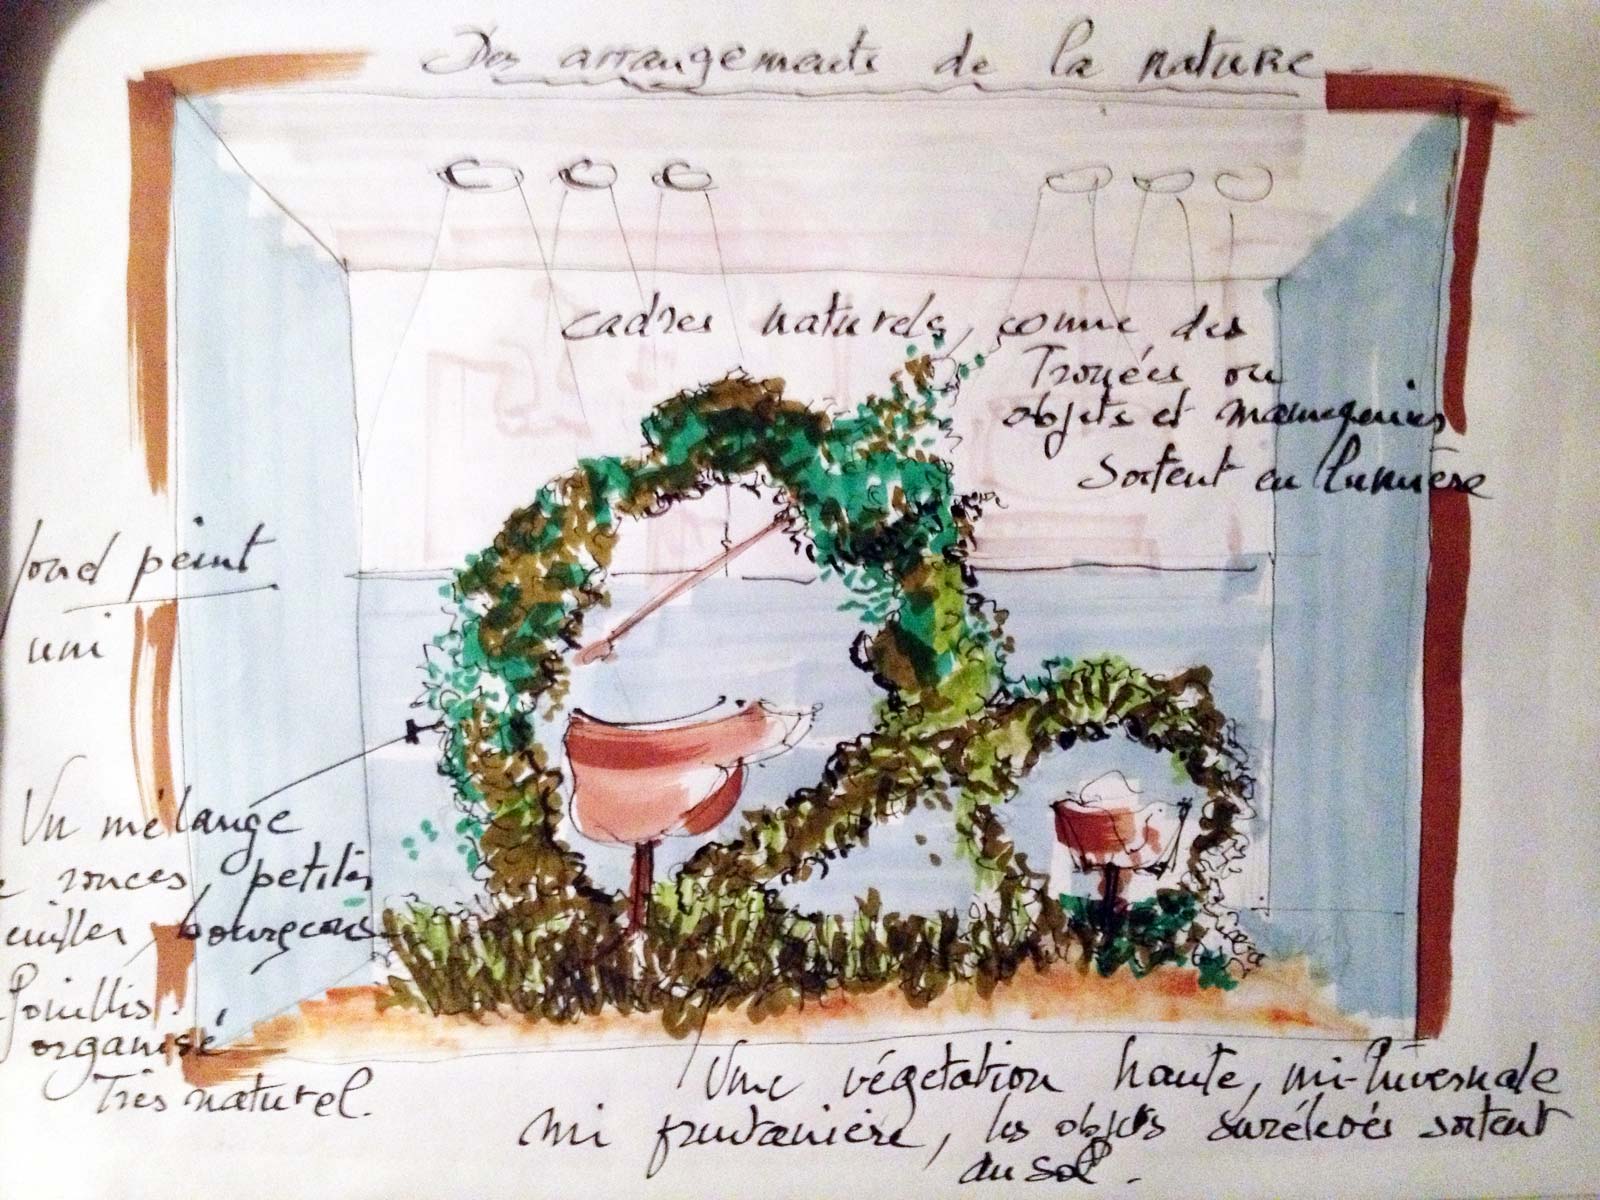 Des arrangements de la nature
cadres naturels, comme des
Trouées ou
objets et mannequins
sortent en lumière
fond peint
uni
Un mélange
ronces, petites
bourgeons
Fouillis
organisé,
Très naturel.
Une végétation haute, mi-hivernale
mi printanière, les objets surélevés sortent
du sol.